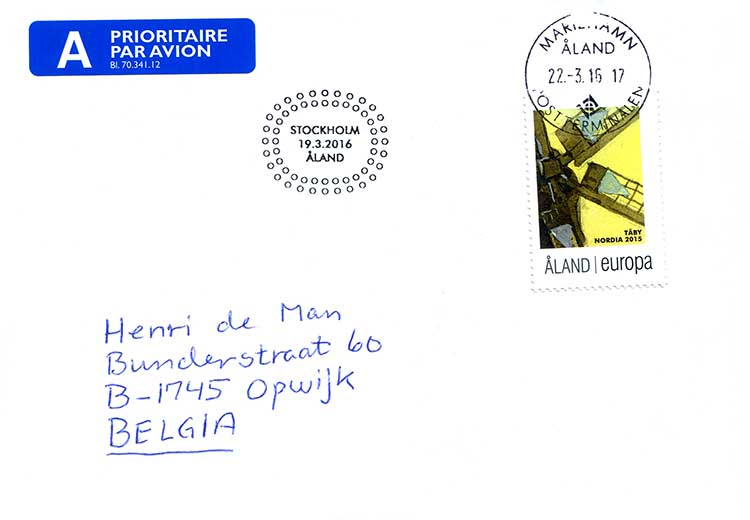 A
PRIORITAIRE
PAR AVION
Bl. 70.341.12
MARIEHAMN
ÅLAND
22.-3.16 17
POSTTERMINALEN
STOCKHOLM
19.3.2016
ÅLAND
TÄBY
NORDIA 2015
ÅLAND | europa
Henri de Man
Bunderstraat 60
B-1745 Opwijk
BELGIA